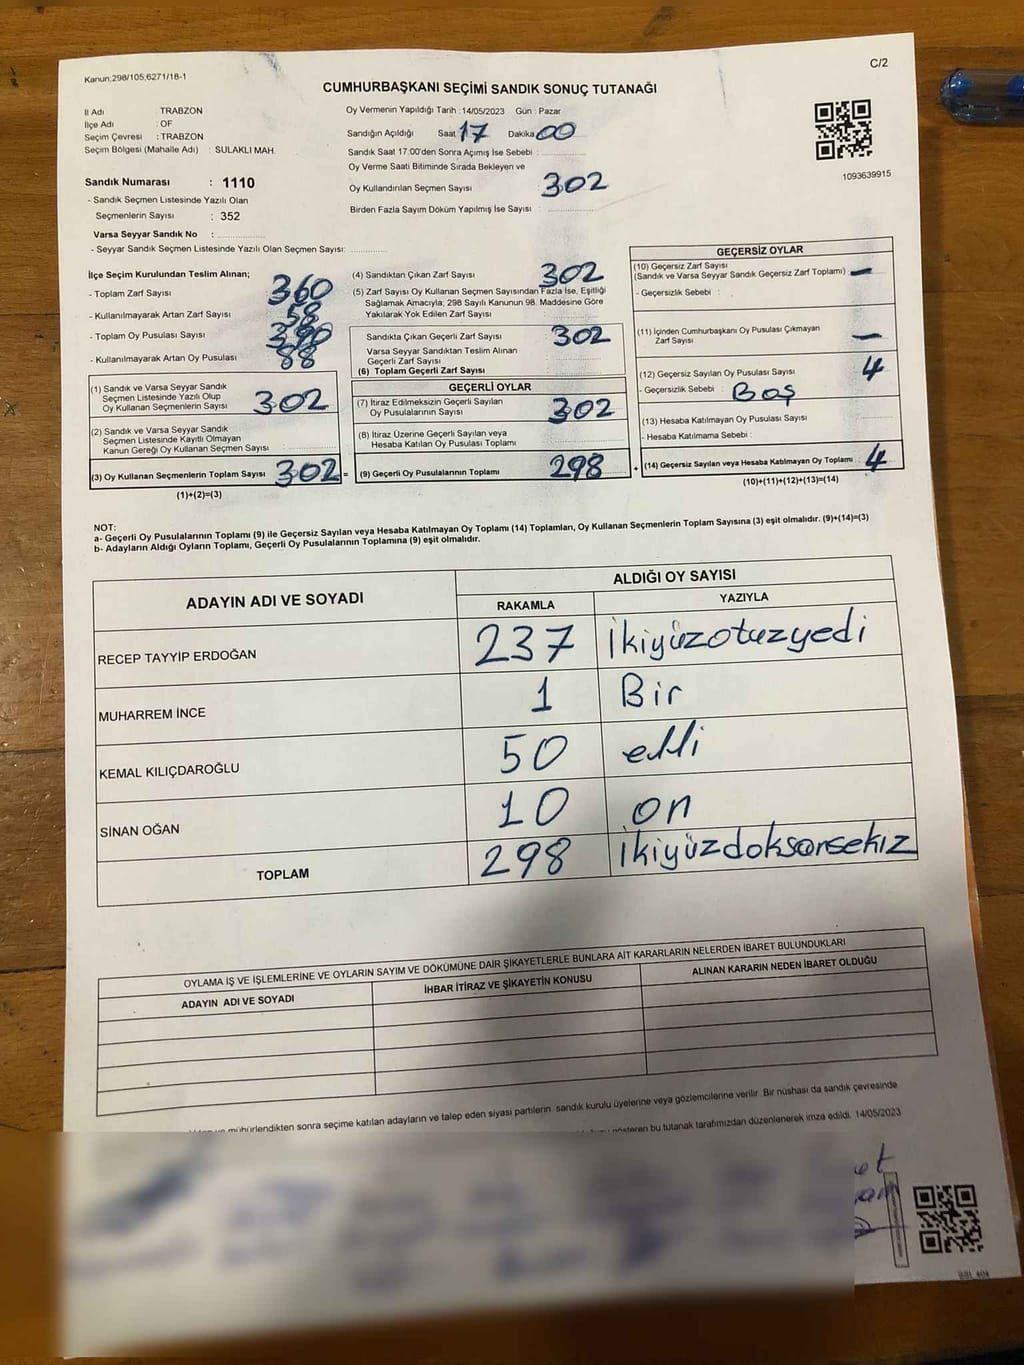 Kanun;298/105,6271/18-1
C/2
CUMHURBAŞKANI SEÇİMİ SANDIK SONUÇ TUTANAĞI
İl Adı : TRABZON
İlçe Adı : OF
Seçim Çevresi : TRABZON
Seçim Bölgesi (Mahalle Adı) : SULAKLI MAH.
Sandık Numarası : 1110
- Sandık Seçmen Listesinde Yazılı Olan
Seçmenlerin Sayısı : 352
Varsa Seyyar Sandık No :
- Seyyar Sandık Seçmen Listesinde Yazılı Olan Seçmen Sayısı:
Oy Vermenin Yapıldığı Tarih : 14/05/2023 Gün : Pazar
Sandığın Açıldığı Saat 17 Dakika 00
Sandık Saat 17:00'den Sonra Açımış İse Sebebi :
Oy Verme Saati Bitiminde Sırada Bekleyen ve
Oy Kullandırılan Seçmen Sayısı : 302
Birden Fazla Sayım Döküm Yapılmış İse Sayısı :
1093639915
İlçe Seçim Kurulundan Teslim Alınan;
- Toplam Zarf Sayısı 360
- Kullanılmayarak Artan Zarf Sayısı : 58
- Toplam Oy Pusulası Sayısı : 390
- Kullanılmayarak Artan Oy Pusulası 88
(1) Sandık ve Varsa Seyyar Sandık
Seçmen Listesinde Yazılı Olup
Oy Kullanan Seçmenlerin Sayısı 302
(2) Sandık ve Varsa Seyyar Sandık
Seçmen Listesinde Kayıtlı Olmayan
Kanun Gereği Oy Kullanan Seçmen Sayısı
(3) Oy Kullanan Seçmenlerin Toplam Sayısı 302 =
(1)+(2)=(3)
(4) Sandıktan Çıkan Zarf Sayısı 302
(5) Zarf Sayısı Oy Kullanan Seçmen Sayısından Fazla İse, Eşitliği
Sağlamak Amacıyla; 298 Sayılı Kanunun 98. Maddesine Göre
Yakılarak Yok Edilen Zarf Sayısı :
Sandıkta Çıkan Geçerli Zarf Sayısı : 302
Varsa Seyyar Sandıktan Teslim Alınan
Geçerli Zarf Sayısı
(6) Toplam Geçerli Zarf Sayısı
GEÇERLİ OYLAR
(7) İtiraz Edilmeksizin Geçerli Sayılan
Oy Pusulalarının Sayısı : 302
(8) İtiraz Üzerine Geçerli Sayılan veya
Hesaba Katılan Oy Pusulası Toplamı
(9) Geçerli Oy Pusulalarının Toplamı 298 +
GEÇERSİZ OYLAR
(10) Geçersiz Zarf Sayısı
(Sandık ve Varsa Seyyar Sandık Geçersiz Zarf Toplamı) —
- Geçersizlik Sebebi :
(11) İçinden Cumhurbaşkanı Oy Pusulası Çıkmayan
Zarf Sayısı —
(12) Geçersiz Sayılan Oy Pusulası Sayısı : 4
- Geçersizlik Sebebi : Boş
(13) Hesaba Katılmayan Oy Pusulası Sayısı
- Hesaba Katılmama Sebebi :
(14) Geçersiz Sayılan veya Hesaba Katılmayan Oy Toplamı : 4
(10)+(11)+(12)+(13)=(14)
NOT:
a- Geçerli Oy Pusulalarının Toplamı (9) ile Geçersiz Sayılan veya Hesaba Katılmayan Oy Toplamı (14) Toplamları, Oy Kullanan Seçmenlerin Toplam Sayısına (3) eşit olmalıdır. (9)+(14)=(3)
b- Adayların Aldığı Oyların Toplamı, Geçerli Oy Pusulalarının Toplamına (9) eşit olmalıdır.
ADAYIN ADI VE SOYADI
ALDIĞI OY SAYISI
RAKAMLA YAZIYLA
RECEP TAYYİP ERDOĞAN 237 İkiyüzotuzyedi
MUHARREM İNCE 1 Bir
KEMAL KILIÇDAROĞLU 50 elli
SİNAN OĞAN 10 on
TOPLAM 298 İkiyüzdoksansekiz
OYLAMA İŞ VE İŞLEMLERİNE VE OYLARIN SAYIM VE DÖKÜMÜNE DAİR ŞİKAYETLERLE BUNLARA AİT KARARLARIN NELERDEN İBARET BULUNDUKLARI
ADAYIN ADI VE SOYADI İHBAR İTİRAZ VE ŞİKAYETİN KONUSU ALINAN KARARIN NEDEN İBARET OLDUĞU
mühürlendikten sonra seçime katılan adayların ve talep eden siyasi partilerin sandık kurulu üyelerine veya gözlemcilerine verilir. Bir nüshası da sandık çevresinde
gösteren bu tutanak tarafımızdan düzenlenerek imza edildi. 14/05/2023